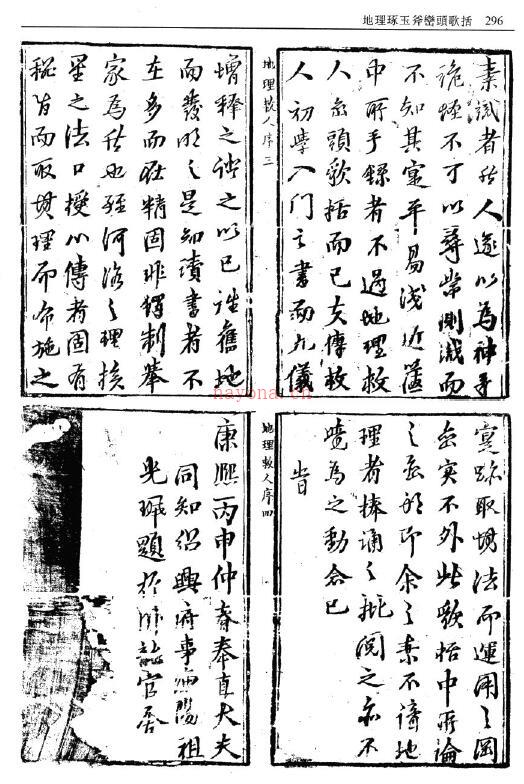 地理琢玉斧巒頭歌括 296
素試者於人遂以為神手
不可以尋常測識而
不知其寔平易淺近篋
中所手錄者不過地理救
人巒頭歌括而已夫傳救
人初學入門之書而九儀
地理救人序三
增釋之 之以己 舊地
而發明之是知讀書者不
在多而在精固非獨制舉
家為然也 河洛之理挨
星之法口授心傳者固有
秘旨而取其理而布施之
寔跡取其法而運用之固
實不外此歌括中所論
之巒形即余之素不諳地
理者捧誦之 閱之亦不
覺為之動念已
旹
地理救人序四
康熙丙申仲春奉直大夫
同知紹興府事 陽祖
光珮題於 官署
hayona.cn